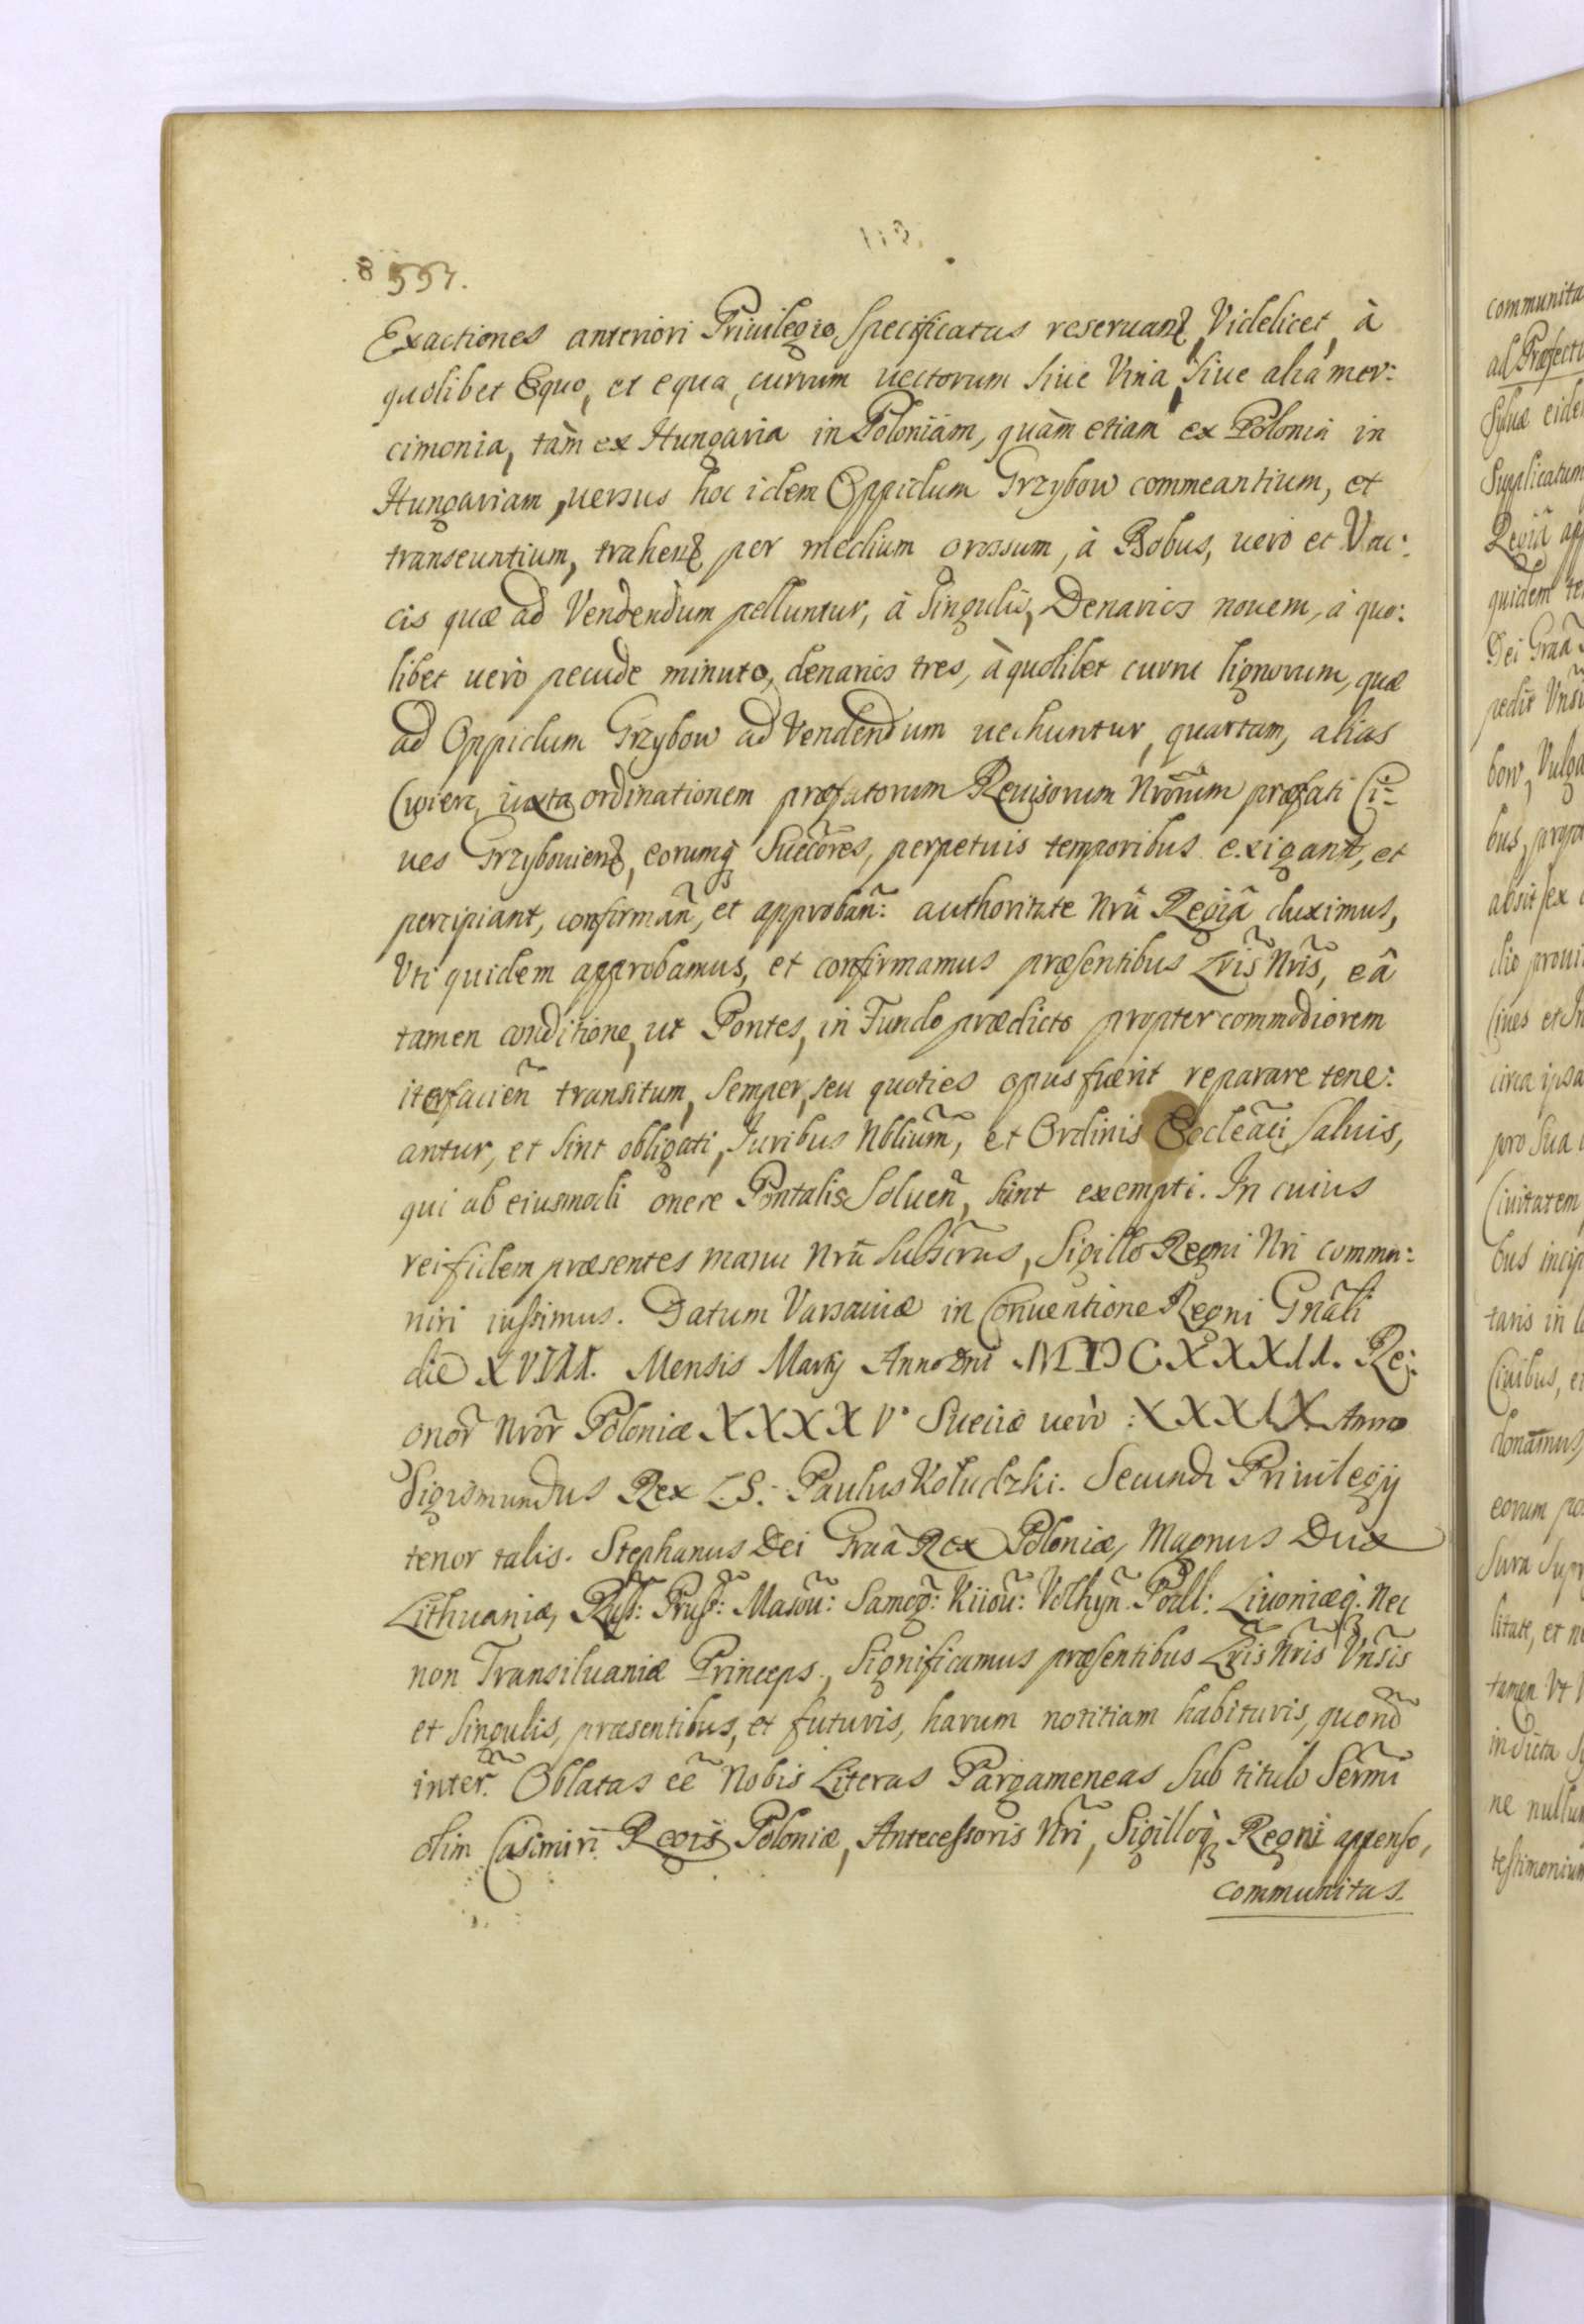 8 557.
Exactiones anteriori Priuilegio Specificatas reseruanȩ, Videlicet, à
quolibet Equo, et equa, currum uectorum siue Vina, siue alia mer:
cimonia, tàm ex Hungaria in Poloniam, quàm etiam ex Polonia in
Hungariam, uersus hoc idem Oppidum Grzybow commeantium, et
transeuntium, trahenȩ per medium grossum, à Bobus, uero et Vac:
cis quæ ad Vendendum pelluntur, à Singulis, Denarios nouem, à quo:
libet uerò pecude minuto, denarios tres, à quolibet curru lignorum, quæ
ad Oppidum Grzybow ad Vendendum uehuntur, quartam, alias
Cwierc, iuxta ordinationem præfatorum Reuisorum Nrõrum præfati Ci:
ues Grzybouienȩ, eorumq̃ Succõres, perpetuis temporibus exigant, et
percipiant, confirmañ, et approbañ: authoritate Nrã Regiâ duximus,
Vti quidem approbamus, et confirmamus præsentibus Lris̃ Nris̃, eâ
tamen conditione, ut Pontes, in Fundo prædicto propter commodiorem
iterfacieñ transitum, Semper, seu quoties opus fuerit reparare tene:
antur, et sint obligati, Juribus Nbliũm, et Ordinis Eccleãci Saluis,
qui ab eiusmodi onere Pontalis Solueñ, sunt exempti. In cuius
rei fidem præsentes manu Nrã Subscr̃as, Sigillo Regni Nri commu:
niri iussimus. Datum Varsauiæ in Conuentione Regni Gnãli
die XVIII. Mensis Martij Anno Dni MDCXXXII. Re:
gnor̃ Nror̃ Poloniæ XXXXV° Sueciæ uerò XXXIX Anno
Sigismundus Rex L.S. Paulus Kołudzki. Secundi Priuilegij
tenor talis. Stephanus Dei Graã Rex Poloniæ, Magnus Dux
Lithuaniæ, Russ̃: Pruss̃: Masoũ: Samog̃: Kiioũ: Volhyñ Podl̃: Liuoniæq̃. Nec
non Transiluaniæ Princeps, Significamus præsentibus Lris̃ Nris̃ Vnsĩs
et singulis, præsentibus, et futuris, harum notitiam habituris, quonõ
inter̃. Oblatas eẽ Nobis Literas Pargameneas Sub titulo Serm̃i
olim Casimiri Regis Poloniæ, Antecessoris Nrĩ, Sigilloq̃ Regni appenso,
communitas.